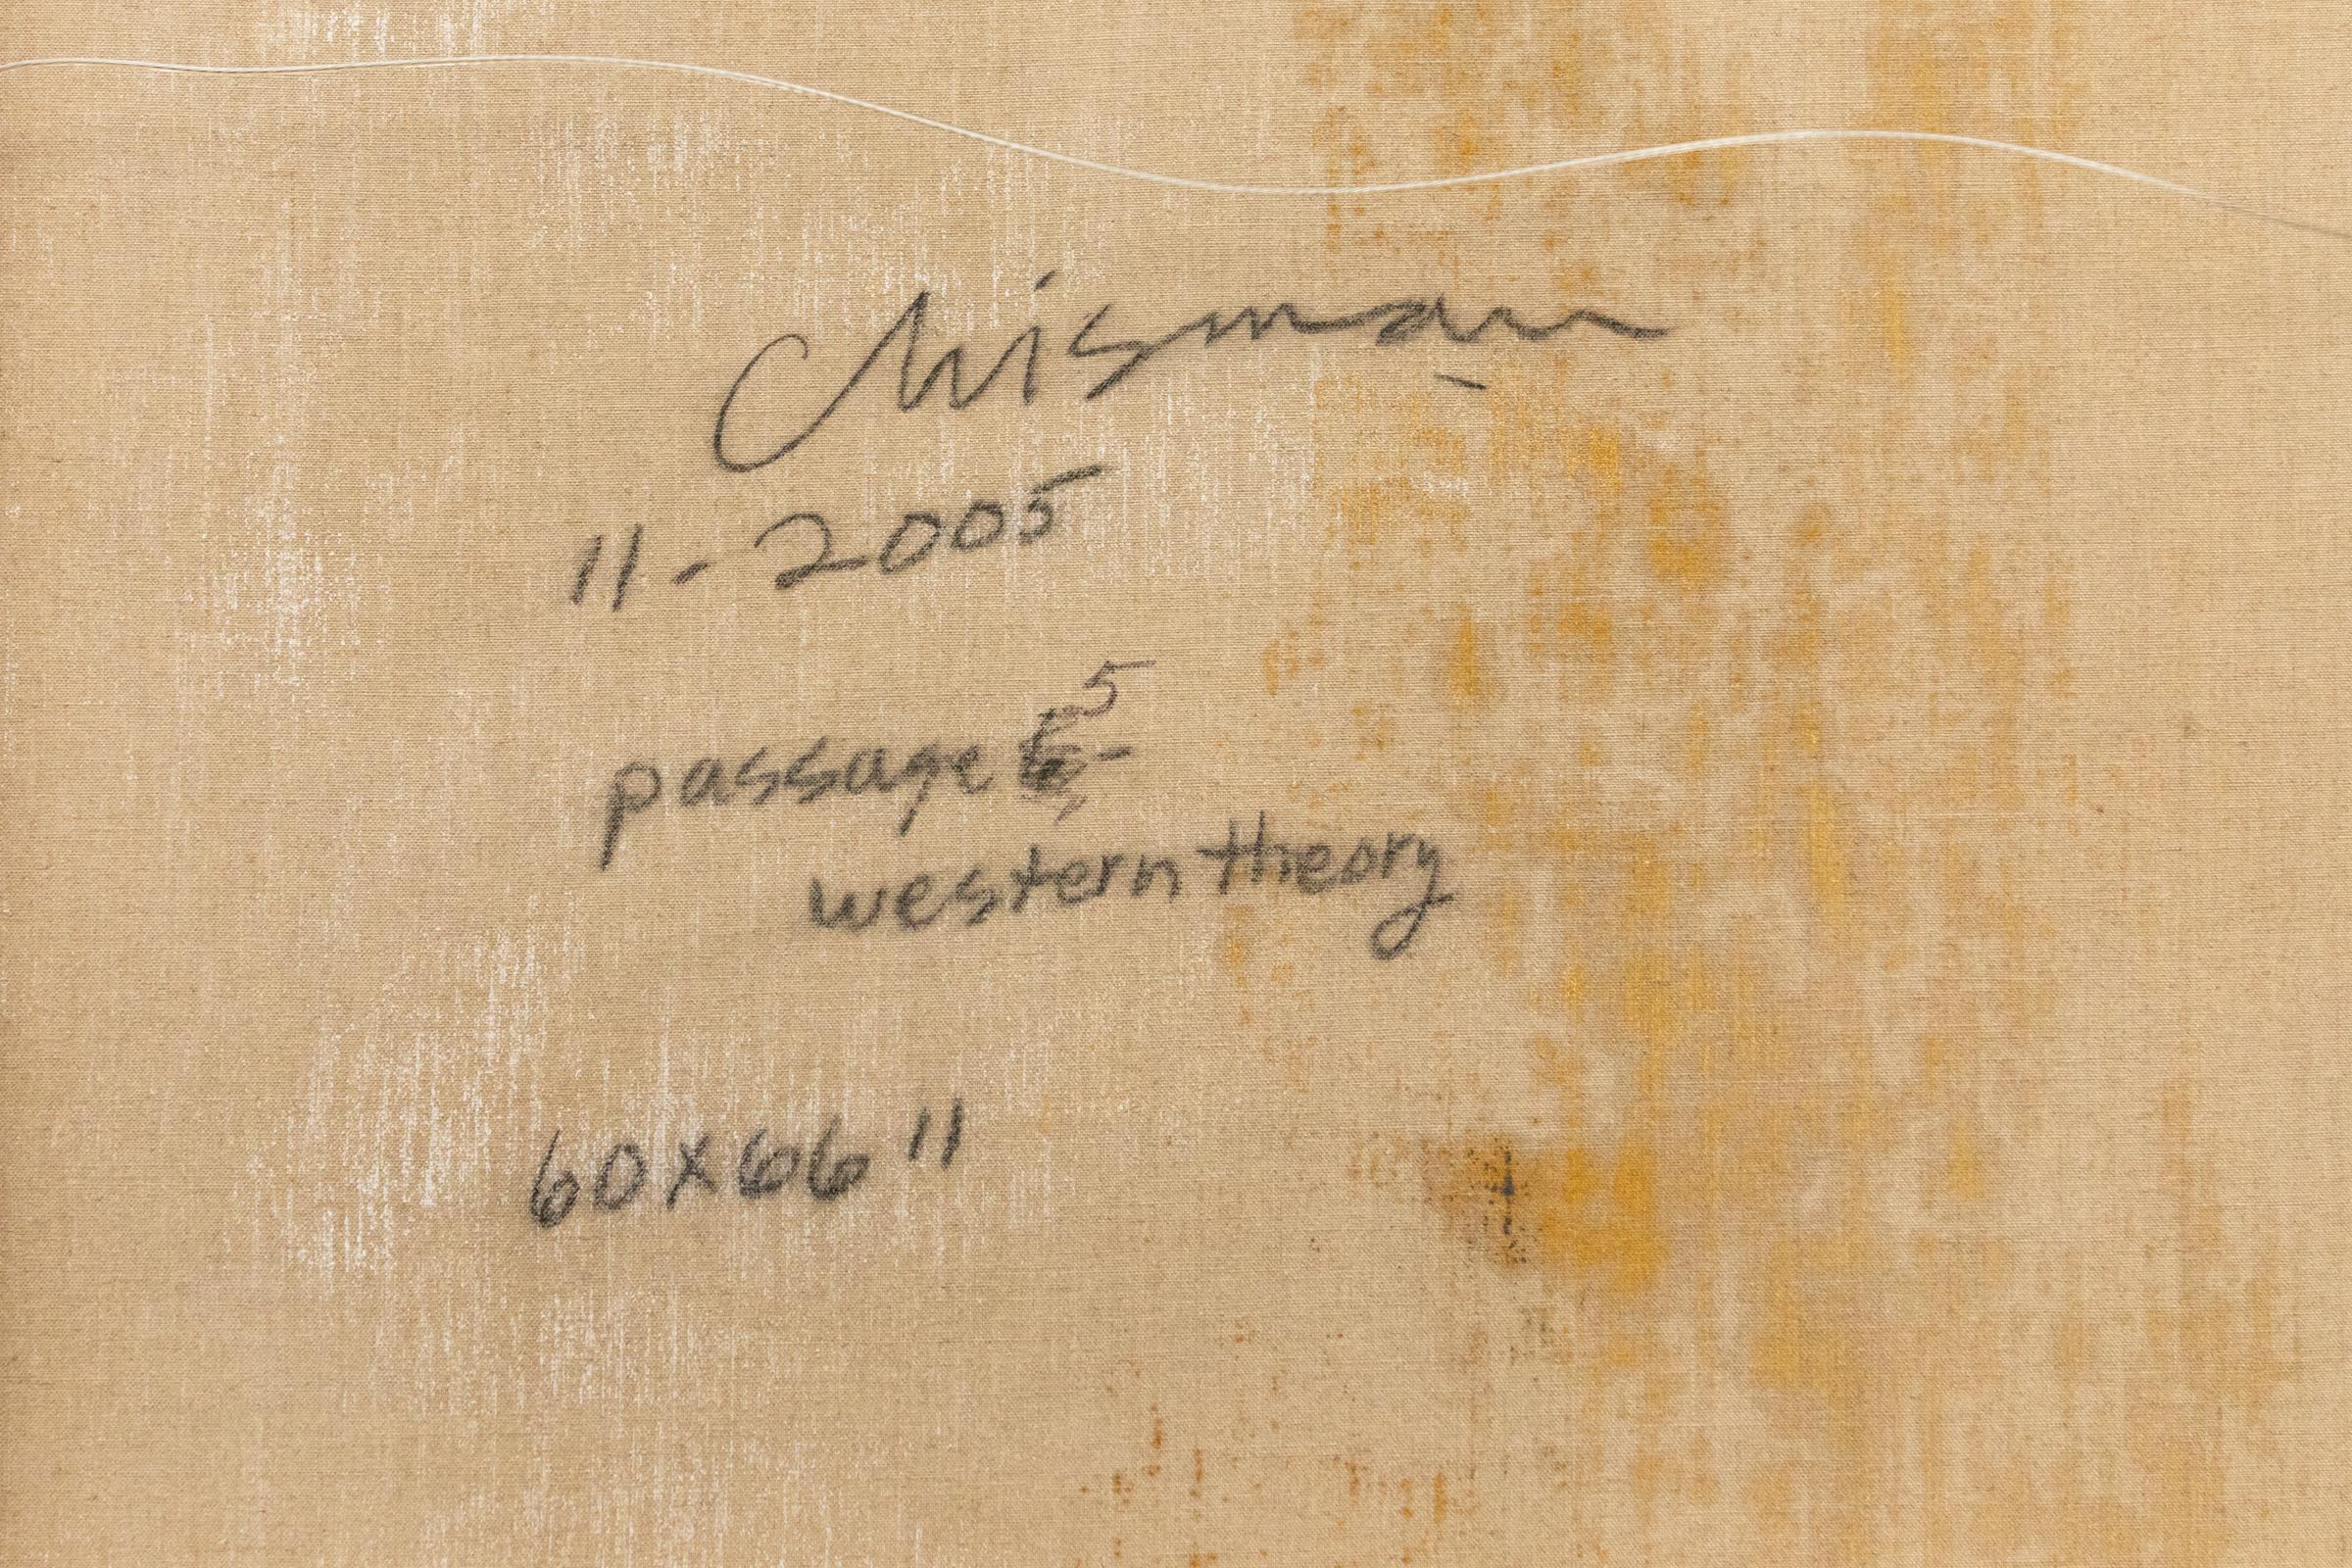 Chisman
11-2005
passage 5 -
western theory
60x66"